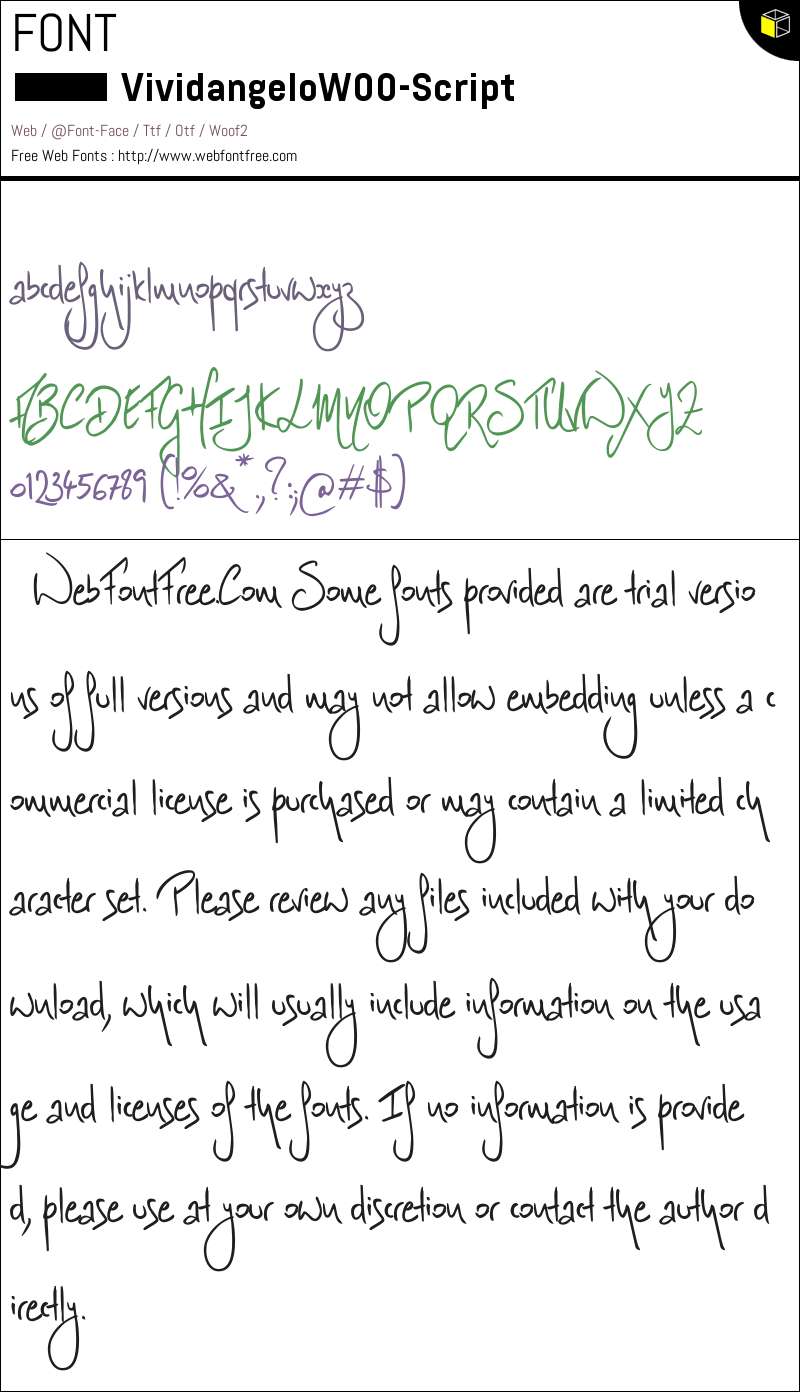 FONT
VividangeloW00-Script
Web / @Font-Face / Ttf / Otf / Woof2
Free Web Fonts : http://www.webfontfree.com
abcdefghijklmnopqrstuvwxyz
ABCDEFGHIJKLMNOPQRSTUVWXYZ
0123456789 (!%&*.,?:;@#$)
WebFontFree.Com Some fonts provided are trial versio
ns of full versions and may not allow embedding unless a c
ommercial license is purchased or may contain a limited ch
aracter set. Please review any files included with your do
wnload, which will usually include information on the usa
ge and licenses of the fonts. If no information is provide
d, please use at your own discretion or contact the author d
irectly.